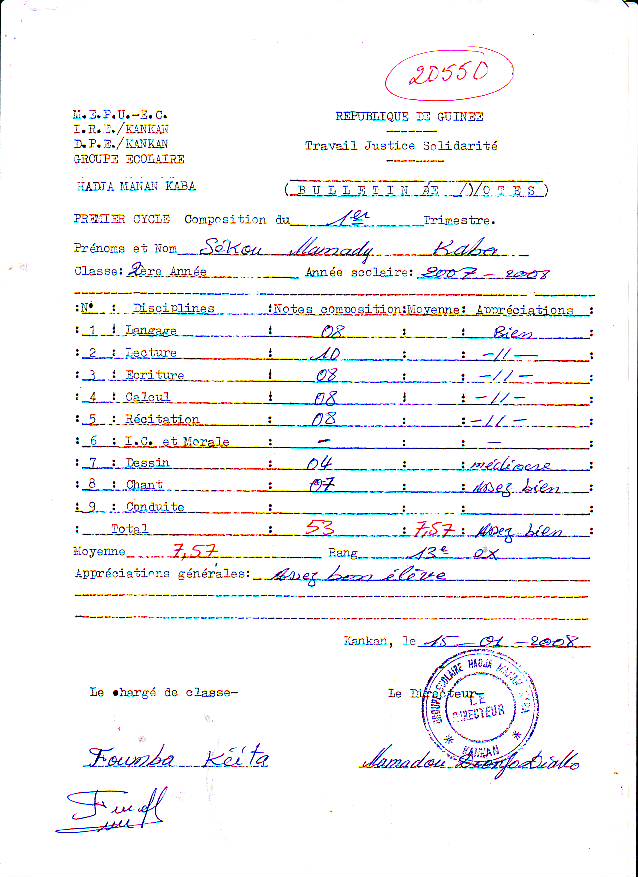 20550
M.E.P.U.-E.C.
I.R.E./KANKAN
D.P.E./KANKAN
GROUPE ECOLAIRE
HADJA MANAN KABA
REPUBLIQUE DE GUINEE
Travail Justice Solidarité
( B U L L E T I N DE N O T E S )
PREMIER CYCLE Composition du 1er Trimestre.
Prénoms et Nom Sékou Mamady Kaba
Classe: 2ère Année Année scolaire: 2007 - 2008
:N° : Disciplines :Notes composition:Moyenne: Appréciations :
: 1 : Langage : 08 : : Bien :
: 2 : Lecture : 10 : : -//- :
: 3 : Ecriture : 08 : : -//- :
: 4 : Calcul : 08 : : -//- :
: 5 : Récitation : 08 : : -//- :
: 6 : I.C. et Morale : - : : - :
: 7 : Dessin : 04 : : médiocre :
: 8 : Chant : 07 : : Assez bien :
: 9 : Conduite : : : :
: Total : 53 : 7,57 : Assez bien :
Moyenne 7,57 Rang 13e ex
Appréciations générales: Assez bon élève
Kankan, le 15 - 01 - 2008
Le chargé de classe- Le Directeur-
GROUPE SCOLAIRE HADJA MANAN KABA
LE
DIRECTEUR
* KANKAN *
Foumba Kéita Mamadou Diallo